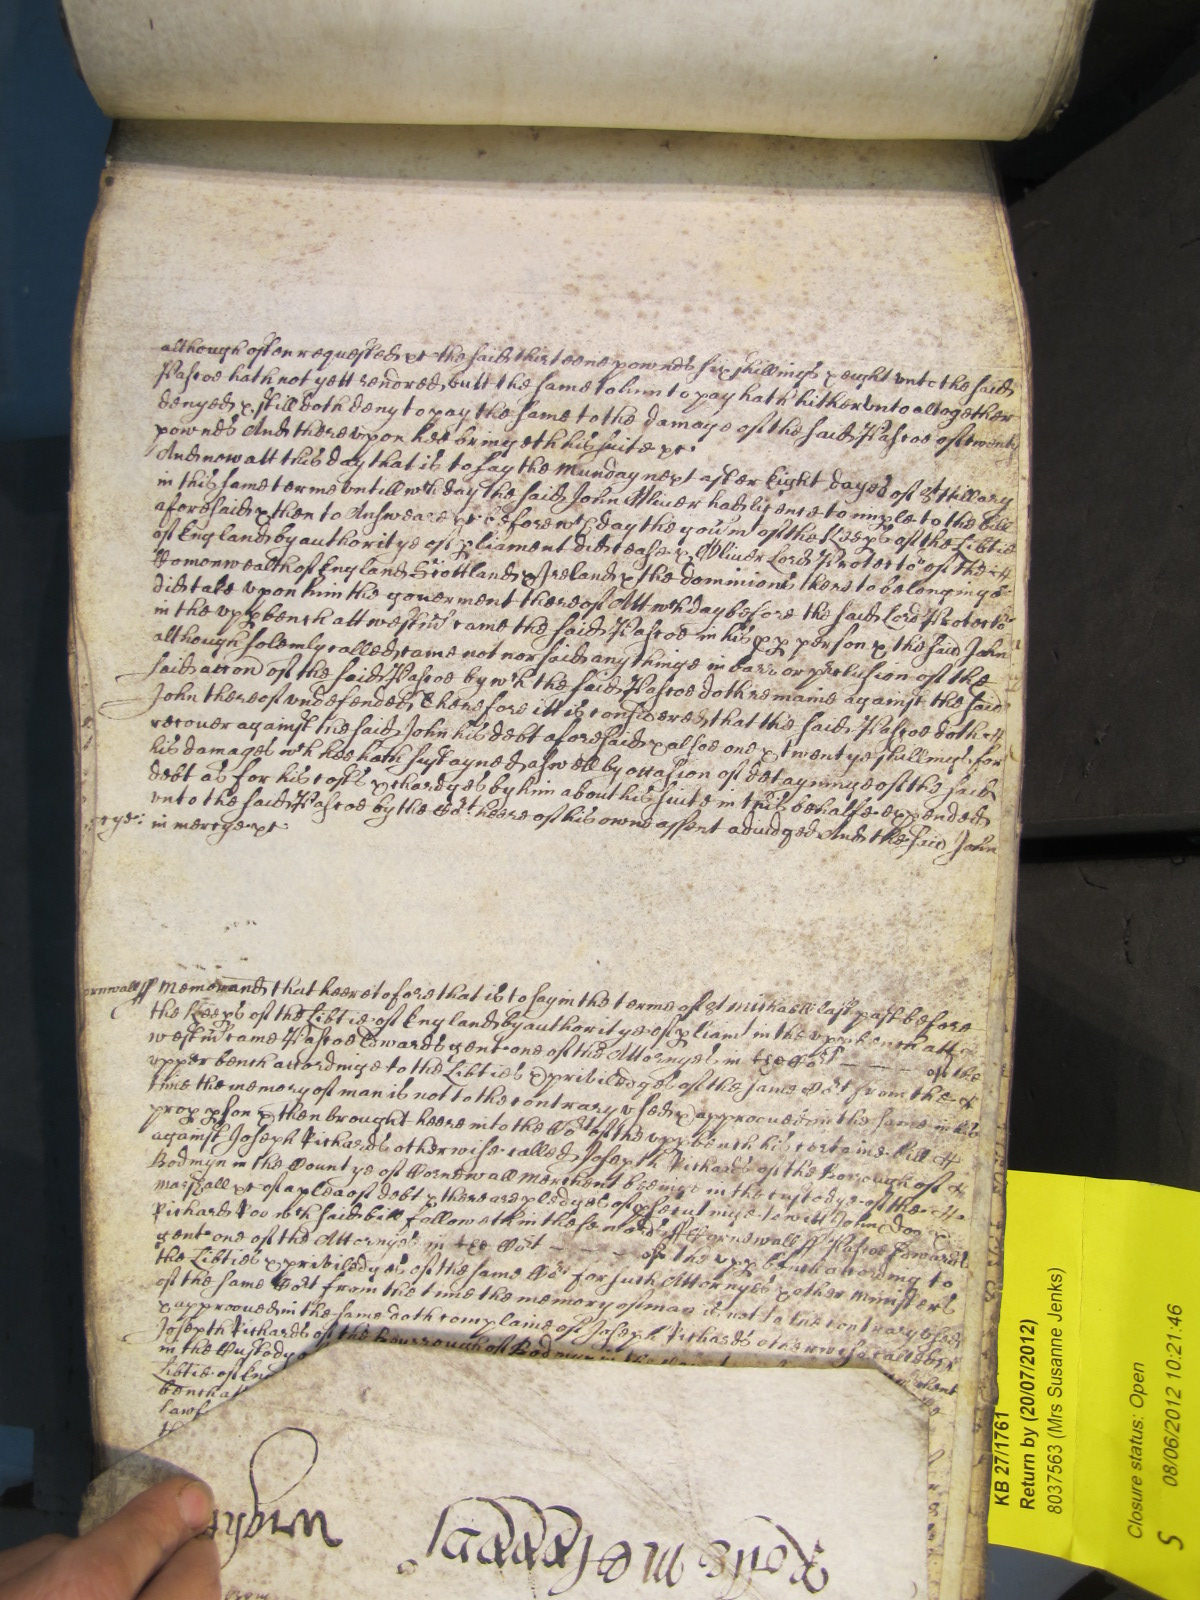 although often requested &c the said thirteene pownds six shillings & eight vnto the said
Pascoe hath not yett rendred butt the same to him to pay hath hitherunto altogether
denyed & still doth deny to pay the same to the damage of the said Pascoe of twenty
pownds And therevpon hee bringeth his suite &c
And now att this day that is to say the Munday next after Eight dayes of St Hillary
in this same terme vntill wch day the said John Oliver had lycense to imple to the bill
aforesaid & then to Answeare &c before wch day the gou'm't of the Keeps of the Libtie
of England by authoritye of pliament did cease & Oliver Lord Protector of the
Comonwealth of England Scottland & Ireland & the dominions thereto belonginge
did take vpon him the gouerment thereof Att wch day before the said Lord Protector
in the vpp bench att westmr came the said Pascoe in his pp person & the said John
although solemly called came not nor said any thinge in barr or preclusion of the
said accon of the said Pascoe by wch the said Pascoe doth remaine against the said
John thereof vndefended Therefore itt is considered that the said Pascoe doth
recouer against the said John his debt aforesaid & alsoe one & twentye shillings for
his damages wch hee hath sustayned aswell by occasion of detayninge of the said
debt as for his costs & chardges by him about his suite in this behalfe expended
vnto the said Pascoe by the Cort heere of his owne assent adiudged And the said John
in mercye &c
ercye:
ornwall ss Memorand that heeretofore that is to say in the terme of St Michaell last past before
the Keeps of the Libtie of England by authoritye of pliamt in the vpp bench att
westmr came Pascoe Edwards gent one of the Attornyes in the Cort - - - of the
vpper bench accordinge to the Libties & priviledges of the same Cort from the
time the memory of man is not to the contrary vsed & approoued in the same in his
prop pson & then brought heere into the Cort of the vpp bench his certaine bill
against Joseph Richards otherwise called Joseph Richards of the Borough of
Bodmyn in the Countye of Cornewall Merchent beeinge in the custodye of the
Marshall &c of a plea of debt & there are pledges of psecutinge to witt John Doo &
Richard Roo wch said bill followeth in these words ss Cornewall ss Pascoe Edwards
gent one of the Attornyes in the Cort - - - of the vpp bench according to
the Libties & priviledges of the same Cort for such Attornyes & other Ministers
of the same Cort from the time the memory of man is not to the contrary vsed
& approoued in the same doth complaine of Joseph Richards otherwise called
Joseph Richards of the Bourrough of Bodmyn in the
in the Custody
Libtie of En
bench at
lawf
Wright
KB 27/1761
Return by (20/07/2012)
8037563 (Mrs Susanne Jenks)
Closure status: Open
08/06/2012 10:21:46
S